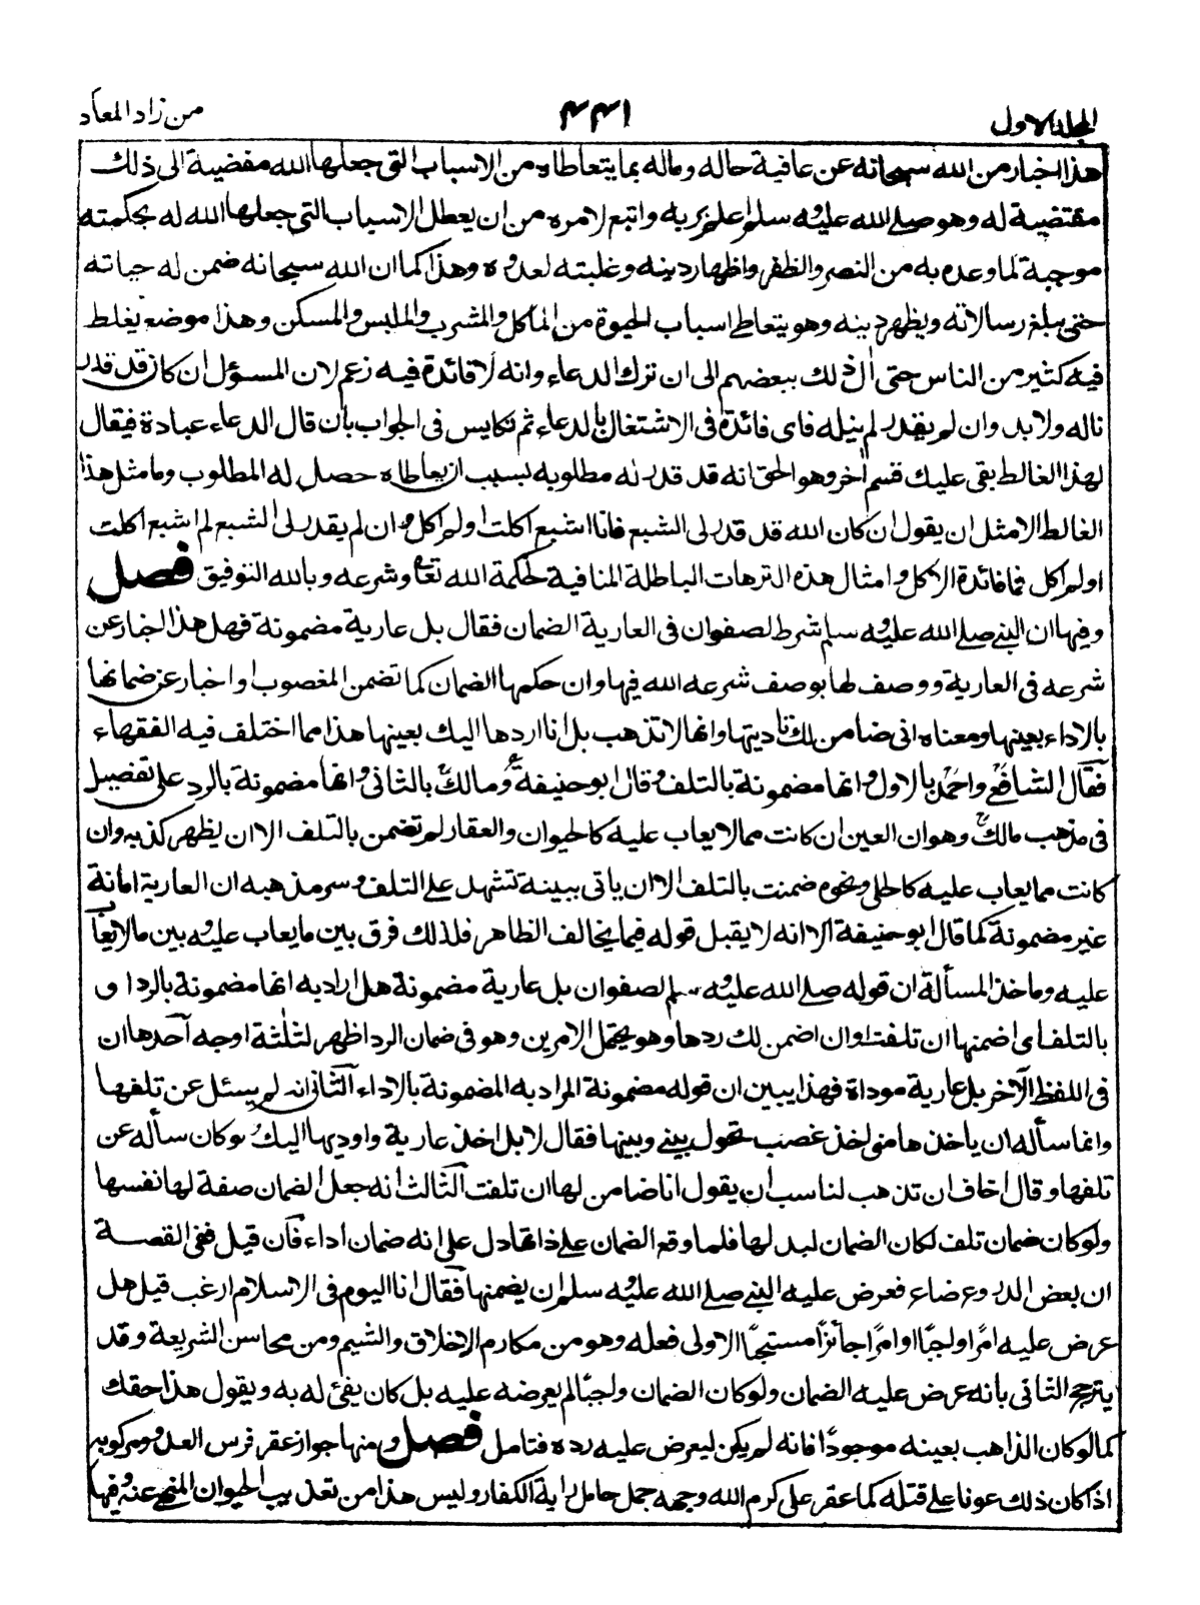 المجلد الاول
٤٤١
من زاد المعاد
هذا اخبار من الله سبحانه عن عاقبة حاله وماله بما يتعاطاه من الاسباب التى جعلها الله مفضية الى ذلك
مقتضية له وهو صلے الله عليه وسلم اعلم بربه واتبع لامره من ان يعطل الاسباب التى جعلها الله له بحكمته
موجبة لما وعده به من النصر والظفر واظهار دينه وغلبته لعدوه وهذا كما ان الله سبحانه ضمن له حياته
حتى يبلغ رسالاته ويظهر دينه وهو يتعاطى اسباب الحيوة من الماكل والمشرب والملبس والمسكن وهذا موضع يغلط
فيه كثير من الناس حتى آل ذلك ببعضهم الى ان ترك الدعاء وانه لا فائدة فيه زعم لان المسؤل ان كان قد قدر
ناله ولا بد وان لم يقدر لم ينله فاى فائدة فى الاشتغال بالدعاء ثم تكايس فى الجواب بان قال الدعاء عبادة فيقال
لهذا الغالط بقى عليك قسم اخر وهو الحق انه قد قدر له مطلوبه بسبب ان تعاطاه حصل له المطلوب وما مثل هذا
الغالط الا مثل ان يقول ان كان الله قد قدر لى الشبع فانا اشبع اكلت او لم اكل وان لم يقدر لى الشبع لم اشبع اكلت
او لم اكل فما فائدة الاكل وامثال هذه الترهات الباطلة المنافية لحكمة الله تعالى وشرعه وبالله التوفيق فصل
وفيها ان النبى صلے الله عليه وسلم شرط لصفوان فى العارية الضمان فقال بل عارية مضمونة فهل هذا اخبار عن
شرعه فى العارية ووصف لها بوصف شرعه الله فيها وان حكمها الضمان كما تضمن المغصوب او اخبار عن ضمانها
بالاداء بعينها ومعناه انى ضامن لك تاديتها وانها لا تذهب بل انا اردها اليك بعينها هذا مما اختلف فيه الفقهاء
فقال الشافعى واحمد بالاول وانها مضمونة بالتلف وقال ابو حنيفة ومالك بالثانى وانها مضمونة بالرد على تفصيل
فى مذهب مالك وهو ان العين ان كانت مما لا يعاب عليه كالحيوان والعقار لم تضمن بالتلف الا ان يظهر كذبه وان
كانت مما يعاب عليه كالحلى ونحوه ضمنت بالتلف الا ان ياتى ببينة تشهد على التلف وسر مذهبه ان العارية امانة
غير مضمونة كما قال ابو حنيفة الا انه لا يقبل قوله فيما يخالف الظاهر فلذلك فرق بين ما يعاب عليه وبين ما لا يعاب
عليه وماخذ المسألة ان قوله صلے الله عليه وسلم لصفوان بل عارية مضمونة هل اراد به انها مضمونة بالرد او
بالتلف اى اضمنها ان تلفت او ان اضمن لك ردها وهو يحتمل الامرين وهو فى ضمان الرد اظهر لثلثة اوجه آحدها ان
فى اللفظ الآخر بل عارية موداة فهذا يبين ان قوله مضمونة المراد به المضمونة بالاداء الثانى انه لم يسئل عن تلفها
وانما سأله ان ياخذها منى اخذ غصب تحول بينى وبينها فقال لا بل اخذ عارية واوديها اليك ولو كان سأله عن
تلفها وقال اخاف ان تذهب لناسب ان يقول انا ضامن لها ان تلفت الثالث انه جعل الضمان صفة لها نفسها
ولو كان ضمان تلف لكان الضمان لبدلها فلما وقع الضمان على ذاتها دل على انه ضمان اداء فان قيل ففى القصة
ان بعض الدروع ضاع فعرض عليه النبى صلے الله عليه وسلم ان يضمنها فقال انا اليوم فى الاسلام ارغب قيل هل
عرض عليه امرًا واجبًا او امرًا جائزًا مستحبًا الاولى فعله وهو من مكارم الاخلاق والشيم ومن محاسن الشريعة وقد
يترجح الثانى بانه عرض عليه الضمان ولو كان الضمان واجبًا لم يعرضه عليه بل كان يفى له به ويقول هذا حقك
كما لو كان الذاهب بعينه موجودًا فانه لم يكن ليعرض عليه رده فتامل فصل ومنها جواز عقر فرس العدو ومركوبه
اذا كان ذلك عونا على قتله كما عقر على كرم الله وجهه جمل حامل راية الكفار وليس هذا من تعذيب الحيوان المنهى عنه وفيها